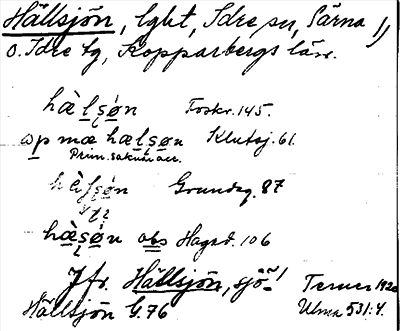 Hällsjön, lght, Idre sn, Särna
o. Idre tg, Kopparbergs län.
hæ̀lsøn Foskr. 145.
op mæ hælsøn Klutsj. 61.
Prim. saknar acc.
Grundag. 87
hæ̀sø̀n obs Hagad. 106
Jfr. Hällsjön, sjö
Hällsjön G. 76
Ulma 531:4.